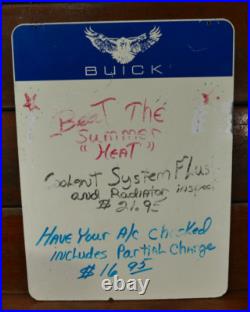 BUICK
Beat The
Summer
"HEAT"
Coolent System Flus
and Radiator inspec
$ 21.95
HAVE YOUR A/c Checked
INCLUDES Partial Charge
$ 16.95
dreamstime.com